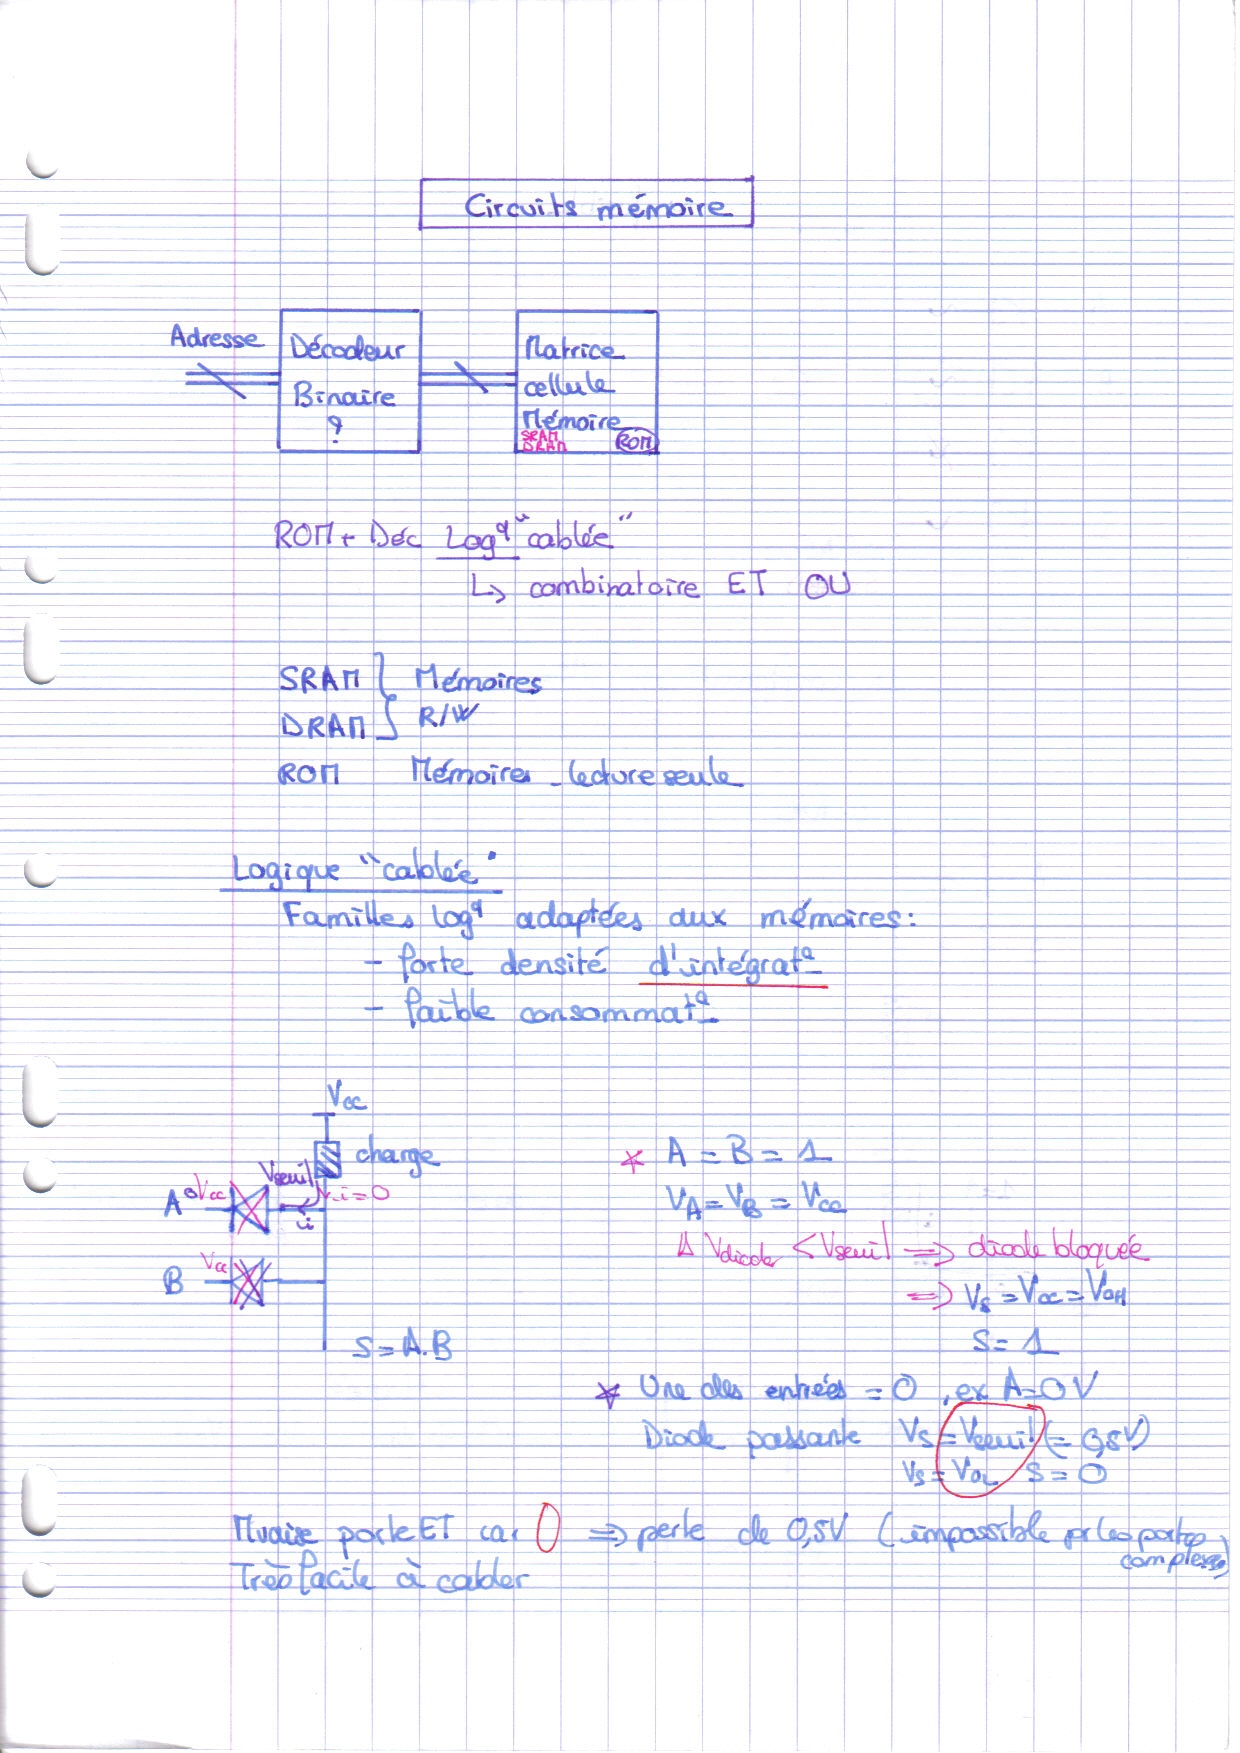 Circuits mémoire
Adresse
Décodeur
Binaire
?
Matrice
cellule
Mémoire
SRAM
DRAM
ROM
ROM + Déc Logq "cablée"
↳ combinatoire ET OU
SRAM } Mémoires
DRAM } R/W
ROM Mémoires lecture seule
Logique "cablée"
Familles logq adaptées aux mémoires:
- forte densité d'intégrato
- faible consommato
Vcc
charge
Vseuil
A Vcc i=0
i
B Vcc
S = A.B
* A = B = 1
VA = VB = Vcc
Δ Vdiode < Vseuil ⇒ diode bloquée
⇒ Vs = Vcc = VOH
S = 1
* Une des entrées = 0, ex A=0V
Diode passante Vs = Vseuil (= 0,5V)
Vs = VOL S = 0
Mvaise porte ET car 0 ⇒ perte de 0,5V (impossible pr les portes
complexes)
Très facile à cabler